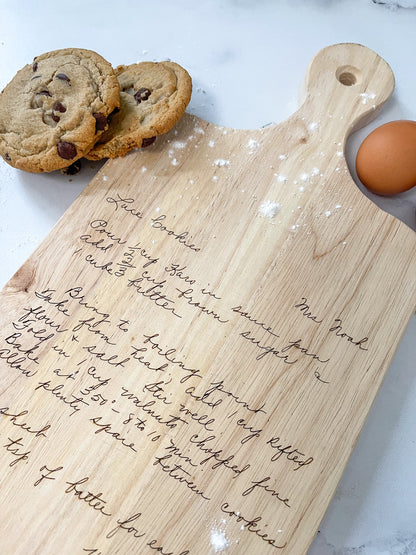 Lace Cookies
Mrs Noah
Pour 1/2 cup Karo in sauce pan
add 2/3 cup brown sugar &
1 cube butter
Bring to boiling point
Take from heat, add 1 cup sifted
flour & salt Stir well
Fold in 1 cup walnuts chopped fine
Bake at 350° - 8 to 10 min
Allow plenty space between cookies
sheet
tsp of batter for each